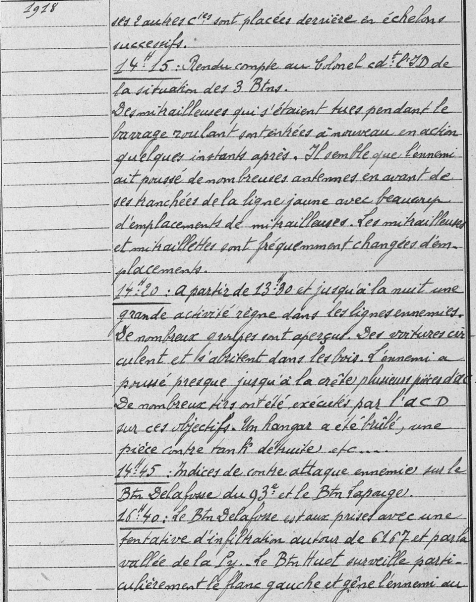 1918
ses 2 autres Cies sont placées derrière en échelons
successifs.
14h15 : Rendu compte au Colonel cdt l'ID de
la situation des 3 Btns.
Des mitrailleuses qui s'étaient tues pendant le
barrage roulant sont entrées à nouveau en action
quelques instants après. Il semble que l'ennemi
ait poussé de nombreuses antennes en avant de
ses tranchées de la ligne jaune avec beaucoup
d'emplacements de mitrailleuses. Les mitrailleuses
et mitraillettes sont fréquemment changées d'em-
placements.
14h20 : a partir de 13h30 et jusqu'à la nuit une
grande activité règne dans les lignes ennemies.
De nombreux groupes sont aperçus. Des voitures cir
culent et s'abritent dans les bois. L'ennemi a
poussé presque jusqu'à la crête, plusieurs pièces d'ac.
De nombreux tirs ont été exécutés par l'aCD
sur ces objectifs. Un hangar a été brûlé, une
pièce contre tank détruite etc....
14h45 : Indices de contre attaque ennemie sur le
Btn Delafosse du 93e et le Btn Laparge.
16h40 : Le Btn Delafosse est aux prises avec une
tentative d'infiltration autour de 6167 et par la
vallée de la Py. Le Btn Huet surveille parti-
culièrement le flanc gauche et gêne l'ennemi au